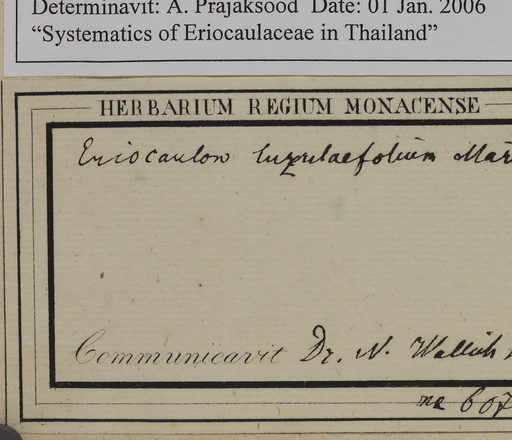 Determinavit: A. Prajaksood Date: 01 Jan. 2006
"Systematics of Eriocaulaceae in Thailand"
HERBARIUM REGIUM MONACENSE
Eriocaulon luzulaefolium Mar
Communicavit Dr. N. Wallich
607